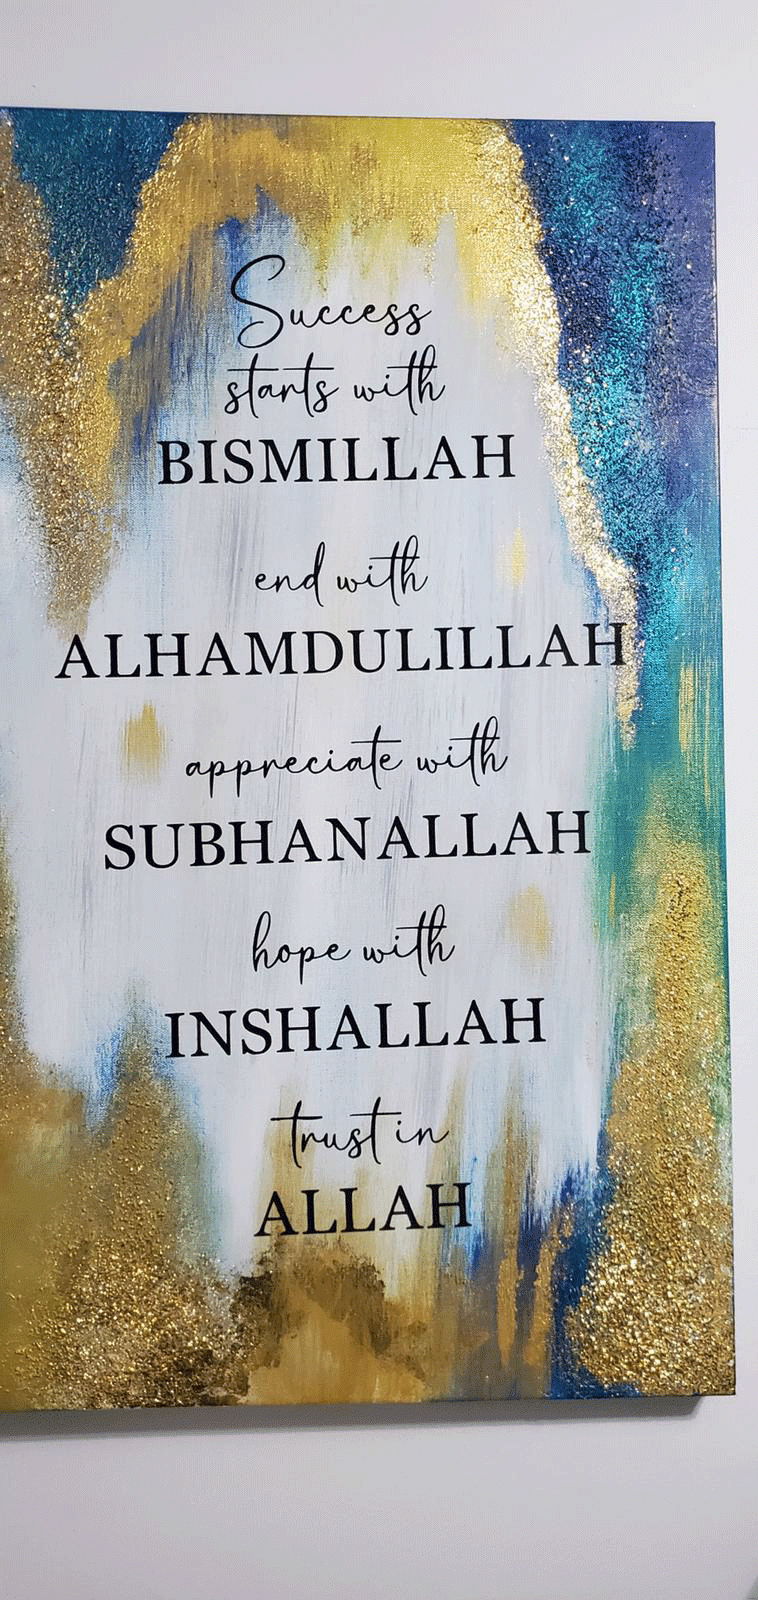 Success
starts with
BISMILLAH
end with
ALHAMDULILLAH
appreciate with
SUBHANALLAH
hope with
INSHALLAH
trust in
ALLAH